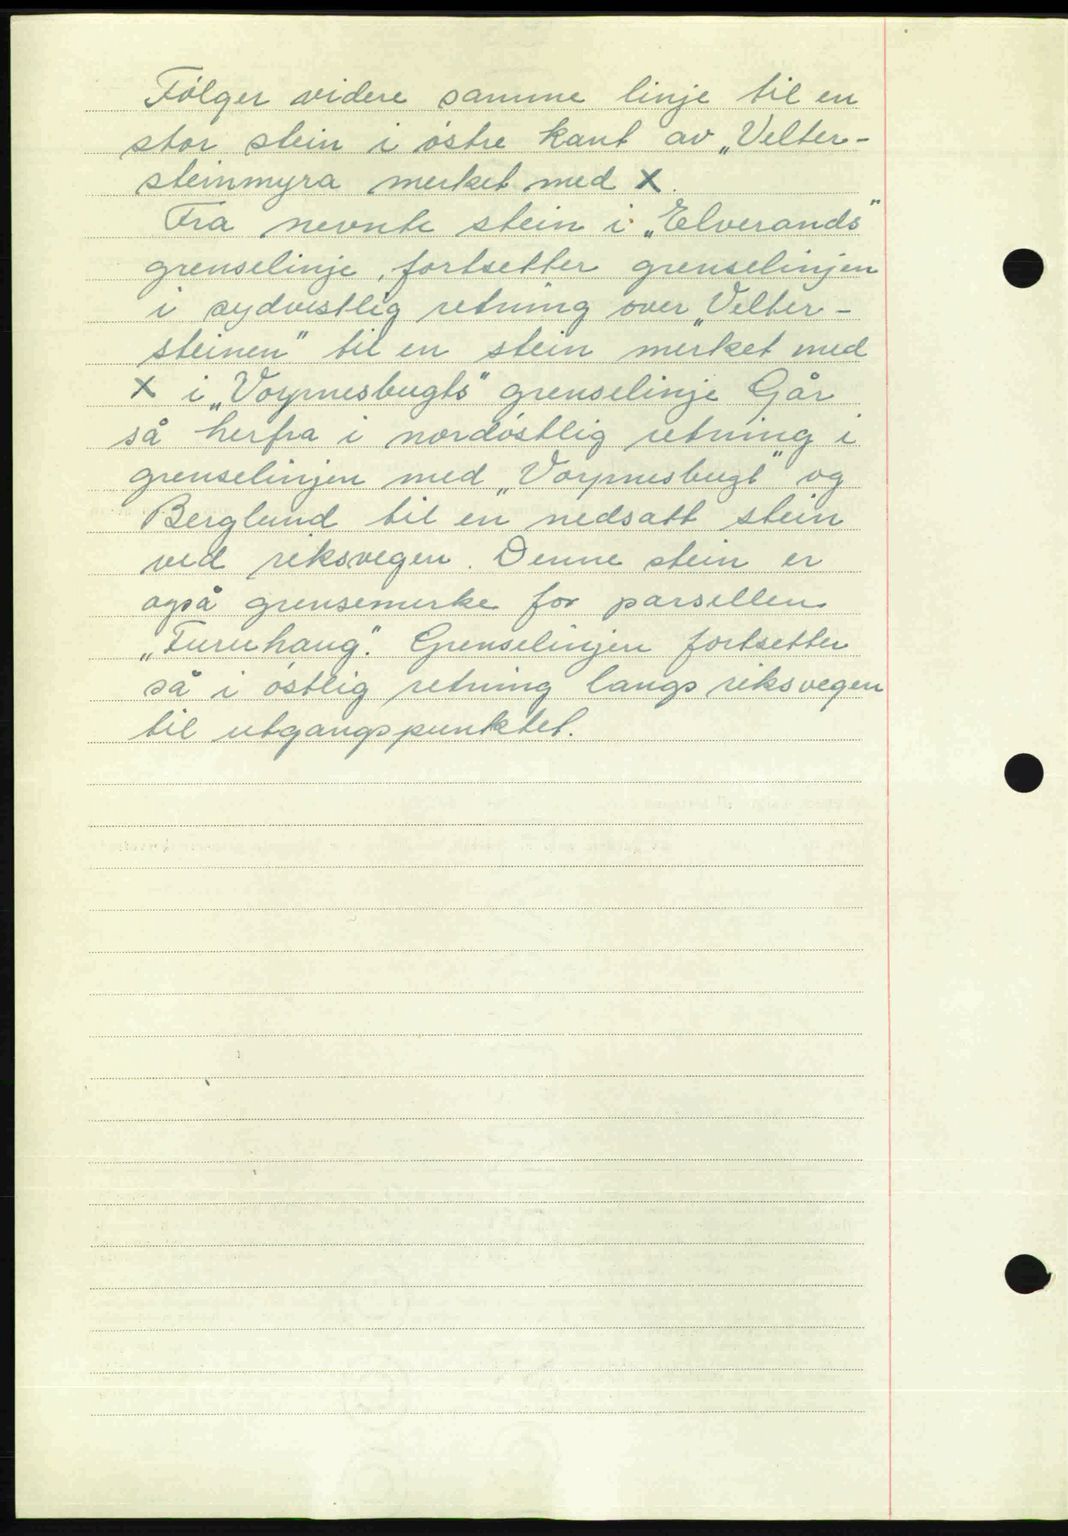 Følger videre samme linje til en
stor stein i østre kant av „Velter-
steinmyra merket med X.
Fra nevnte stein i „Elverands"
grenselinje, fortsetter grenselinjen
i sydvestlig retning over „Velter-
steinen" til en stein merket med
X i „Voyrnesbugts" grenselinje Går
så herfra i nordøstlig retning i
grenselinjen med „Voyrnesbugt" og
Berglund til en nedsatt stein
ved riksvegen. Denne stein er
også grensemerke for parsellen
„Furuhaug". Grenselinjen fortsetter
så i østlig retning langs riksvegen
til utgangspunktet.